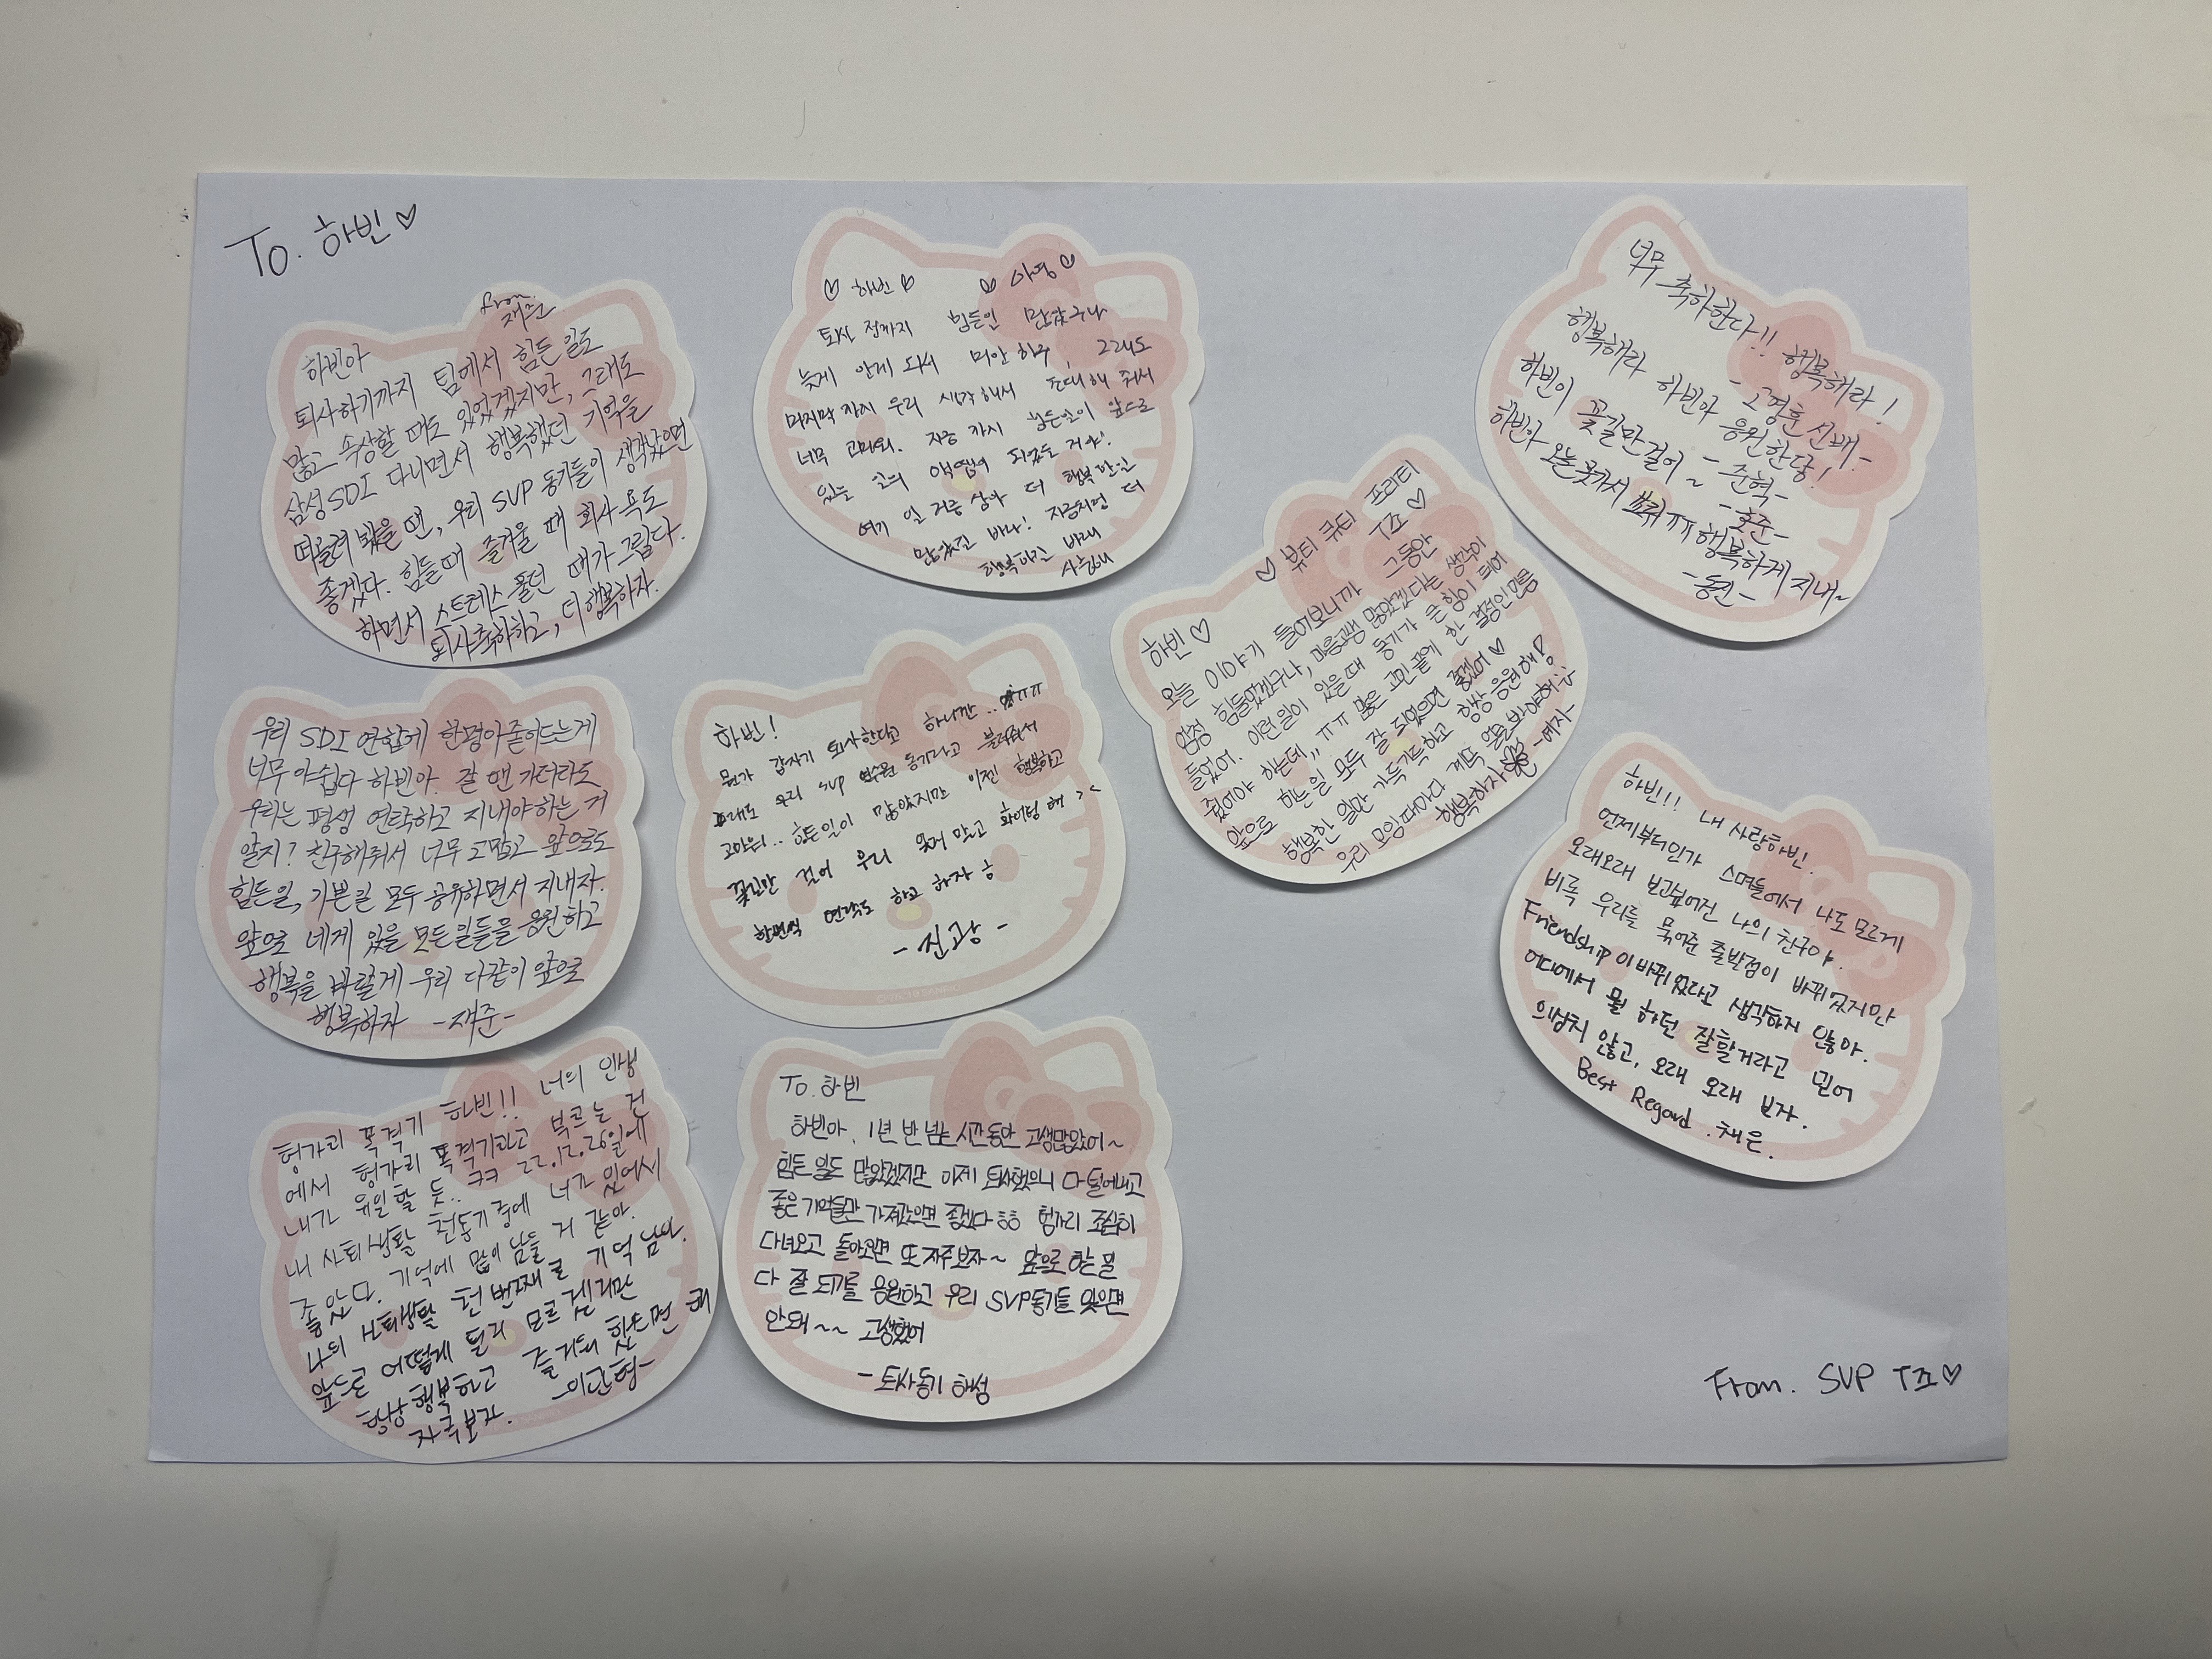 To. 하빈♡
from. 재준
하빈아
퇴사하기까지 팀에서 힘든 일도
많고 속상할 때도 있었겠지만, 그래도
삼성SDI 다니면서 행복했던 기억을
떠올려 봤을 땐, 우리 SVP 동기들이 생각났으면
좋겠다. 힘들때 즐거울 때 회사 욕도
하면서 스트레스 풀던 때가 그립다.
퇴사축하하고, 더 행복하자.
♡ 하빈 ♡ ♡ 아영 ♡
퇴사 전까지 힘든일 많았구나
늦게 알게 되서 미안하구, 그래도
마지막까지 우리 생각해서 초대해 줘서
너무 고마워. 지금까지 힘든일이 앞으로
있을 일의 액땜이 되었을 거야!
여기 일 거름 삼아 더 행복한일
많았음 바라! 지금처럼 더
행복하길 바래
사랑해
너무 축하한다!! 행복해라!
- 고경훈 선배 -
행복해라 하빈아 응원한당!
- 준혁 -
하빈이 꽃길만 걸어~
- 호준 -
하빈아 오늘 못가서 쏘리ㅠㅠ 행복하게 지내~
- 동진 -
♡ 뷰티 큐티 프리티
하빈♡
오늘 이야기 들어보니까 그동안
엄청 힘들었겠구나, 마음고생 많았겠다는 생각이
들었어. 이런일이 있을때 동기가 큰 힘이 되어
줬어야 하는데,, ㅠㅠ 많은 고민 끝에 한 결정인만큼
앞으로 하는 일 모두 잘 되었으면 좋겠어♡
행복한 일만 가득가득하고 항상 응원해!
우리 모임 때마다 계속 얼굴 봐야해
행복하자 -예지-
우리 SDI 연합에 한명이 줄어드는게
너무 아쉽다 하빈아. 잘 맨 거더라도
우리는 평생 연락하고 지내야하는 거
알지? 친구해줘서 너무 고맙고 앞으로도
힘든일, 기쁜일 모두 공유하면서 지내자.
앞으로 네게 있을 모든일들을 응원하고
행복을 바랄게 우리 다같이 앞으로
행복하자 -재준-
하빈!
뭔가 갑자기 퇴사한다고 하니깐.. ㅠㅠ
그래도 우리 SVP 연수원 동기라고 불러줘서
고마워.. 힘든일이 많았지만 이젠 행복하고
꽃길만 걸어 우리 잊지 말고 화이팅 해 ><
한번씩 연락도 하고 하자 ㅎ
- 진광 -
하빈!!! 내 사랑하빈.
언제부터인가 스며들어서 나도 모르게
오래오래 보고싶어진 나의 친구야.
비록 우리를 묶어준 출발점이 바뀌었지만
Friendship이 바뀌었다고 생각하지 않아.
어디에서 뭘 하던 잘할거라고 믿어
의심치 않고, 오래 오래 보자.
Best Regard. 채은.
헝가리 폭격기 하빈!! 너의 인생
에서 헝가리 폭격기라고 부르는 건
내가 유일할 듯.. ㅋㅋ 22.12.26일에
내 사회생활 첫동기 중에 너가 있어서
좋았다. 기억에 많이 남을 거 같아.
나의 사회생활 첫 번째로 기억 남아.
앞으로 어떻게 될지 모르겠지만
항상 행복하고 즐거웠으면 해
자주보자. -이관형-
To. 하빈
하빈아, 1년 반 넘는 시간동안 고생많았어~
힘든 일도 많았겠지만 이제 퇴사했으니 다 털어내고
좋은 기억들만 가져갔으면 좋겠다 ㅎㅎ 헝가리 조심히
다녀오고 돌아오면 또 자주보자~ 앞으로 하는 일
다 잘 되기를 응원하고 우리 SVP동기들 잊으면
안돼~~ 고생했어
- 퇴사동기 해성
From. SVP T조♡